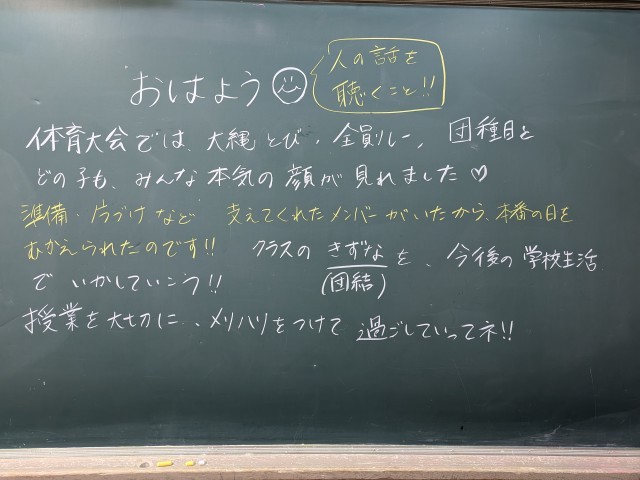 おはよう
人の話を
聴くこと!!
体育大会では、大縄とび、全員リレー、団種目と
どの子も、みんな本気の顔が見れました♡
準備・片づけなど 支えてくれたメンバーがいたから、本番の日を
むかえられたのです!! クラスの きずな を、今後の学校生活
(団結)
で いかしていこう!!
授業を大切に、メリハリをつけて 過ごしていってネ!!